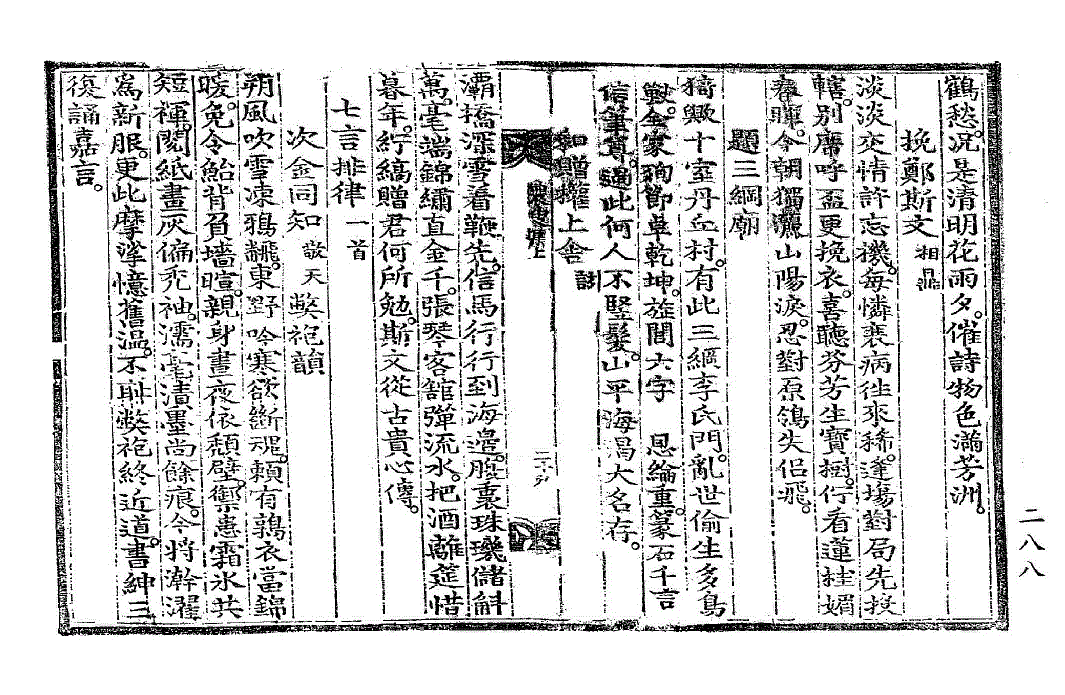 鶴愁。況是清明花雨夕。催詩物色滿芳洲。
挽鄭斯文 相鼎
淡淡交情許忘機。每憐衰病往來稀。逢場對局先投
轄。別膚呼盃更挽衣。喜聽芬芳生寶樹。佇看蓮桂媚
春暉。今朝獨灑山陽淚。忍對原鴒失侶飛。
題三綱廟
猗歟十室丹丘村。有此三綱李氏門。亂世偷生多鳥
獸。全家殉節卓乾坤。旌閭六字 恩綸重。篆石千言
信筆尊。過此何人不豎髮。山平海渴大名存。
和贈權上舍
灞橋深雪着鞭先。信馬行行到海邊。腹裏珠璣儲斛
萬。毫端錦繡直金千。張琴客館彈流水。把酒離筵惜
暮年。紵縞贈君何所勉。斯文從古貴心傳。
七言排律 一首
次金同知 敬天 弊袍韻
朔風吹雪凍鴉飜。東野吟寒欲斷魂。賴有鶉衣當錦
暖。免令鮐背負墻暄。親身晝夜依頹壁。禦患霜氷共
短褌。閱紙畫灰偏禿袖。濡毫漬墨尙餘痕。今將澣濯
爲新服。更此摩挲憶舊溫。不恥弊袍終近道。書紳三
復誦嘉言。
二八八